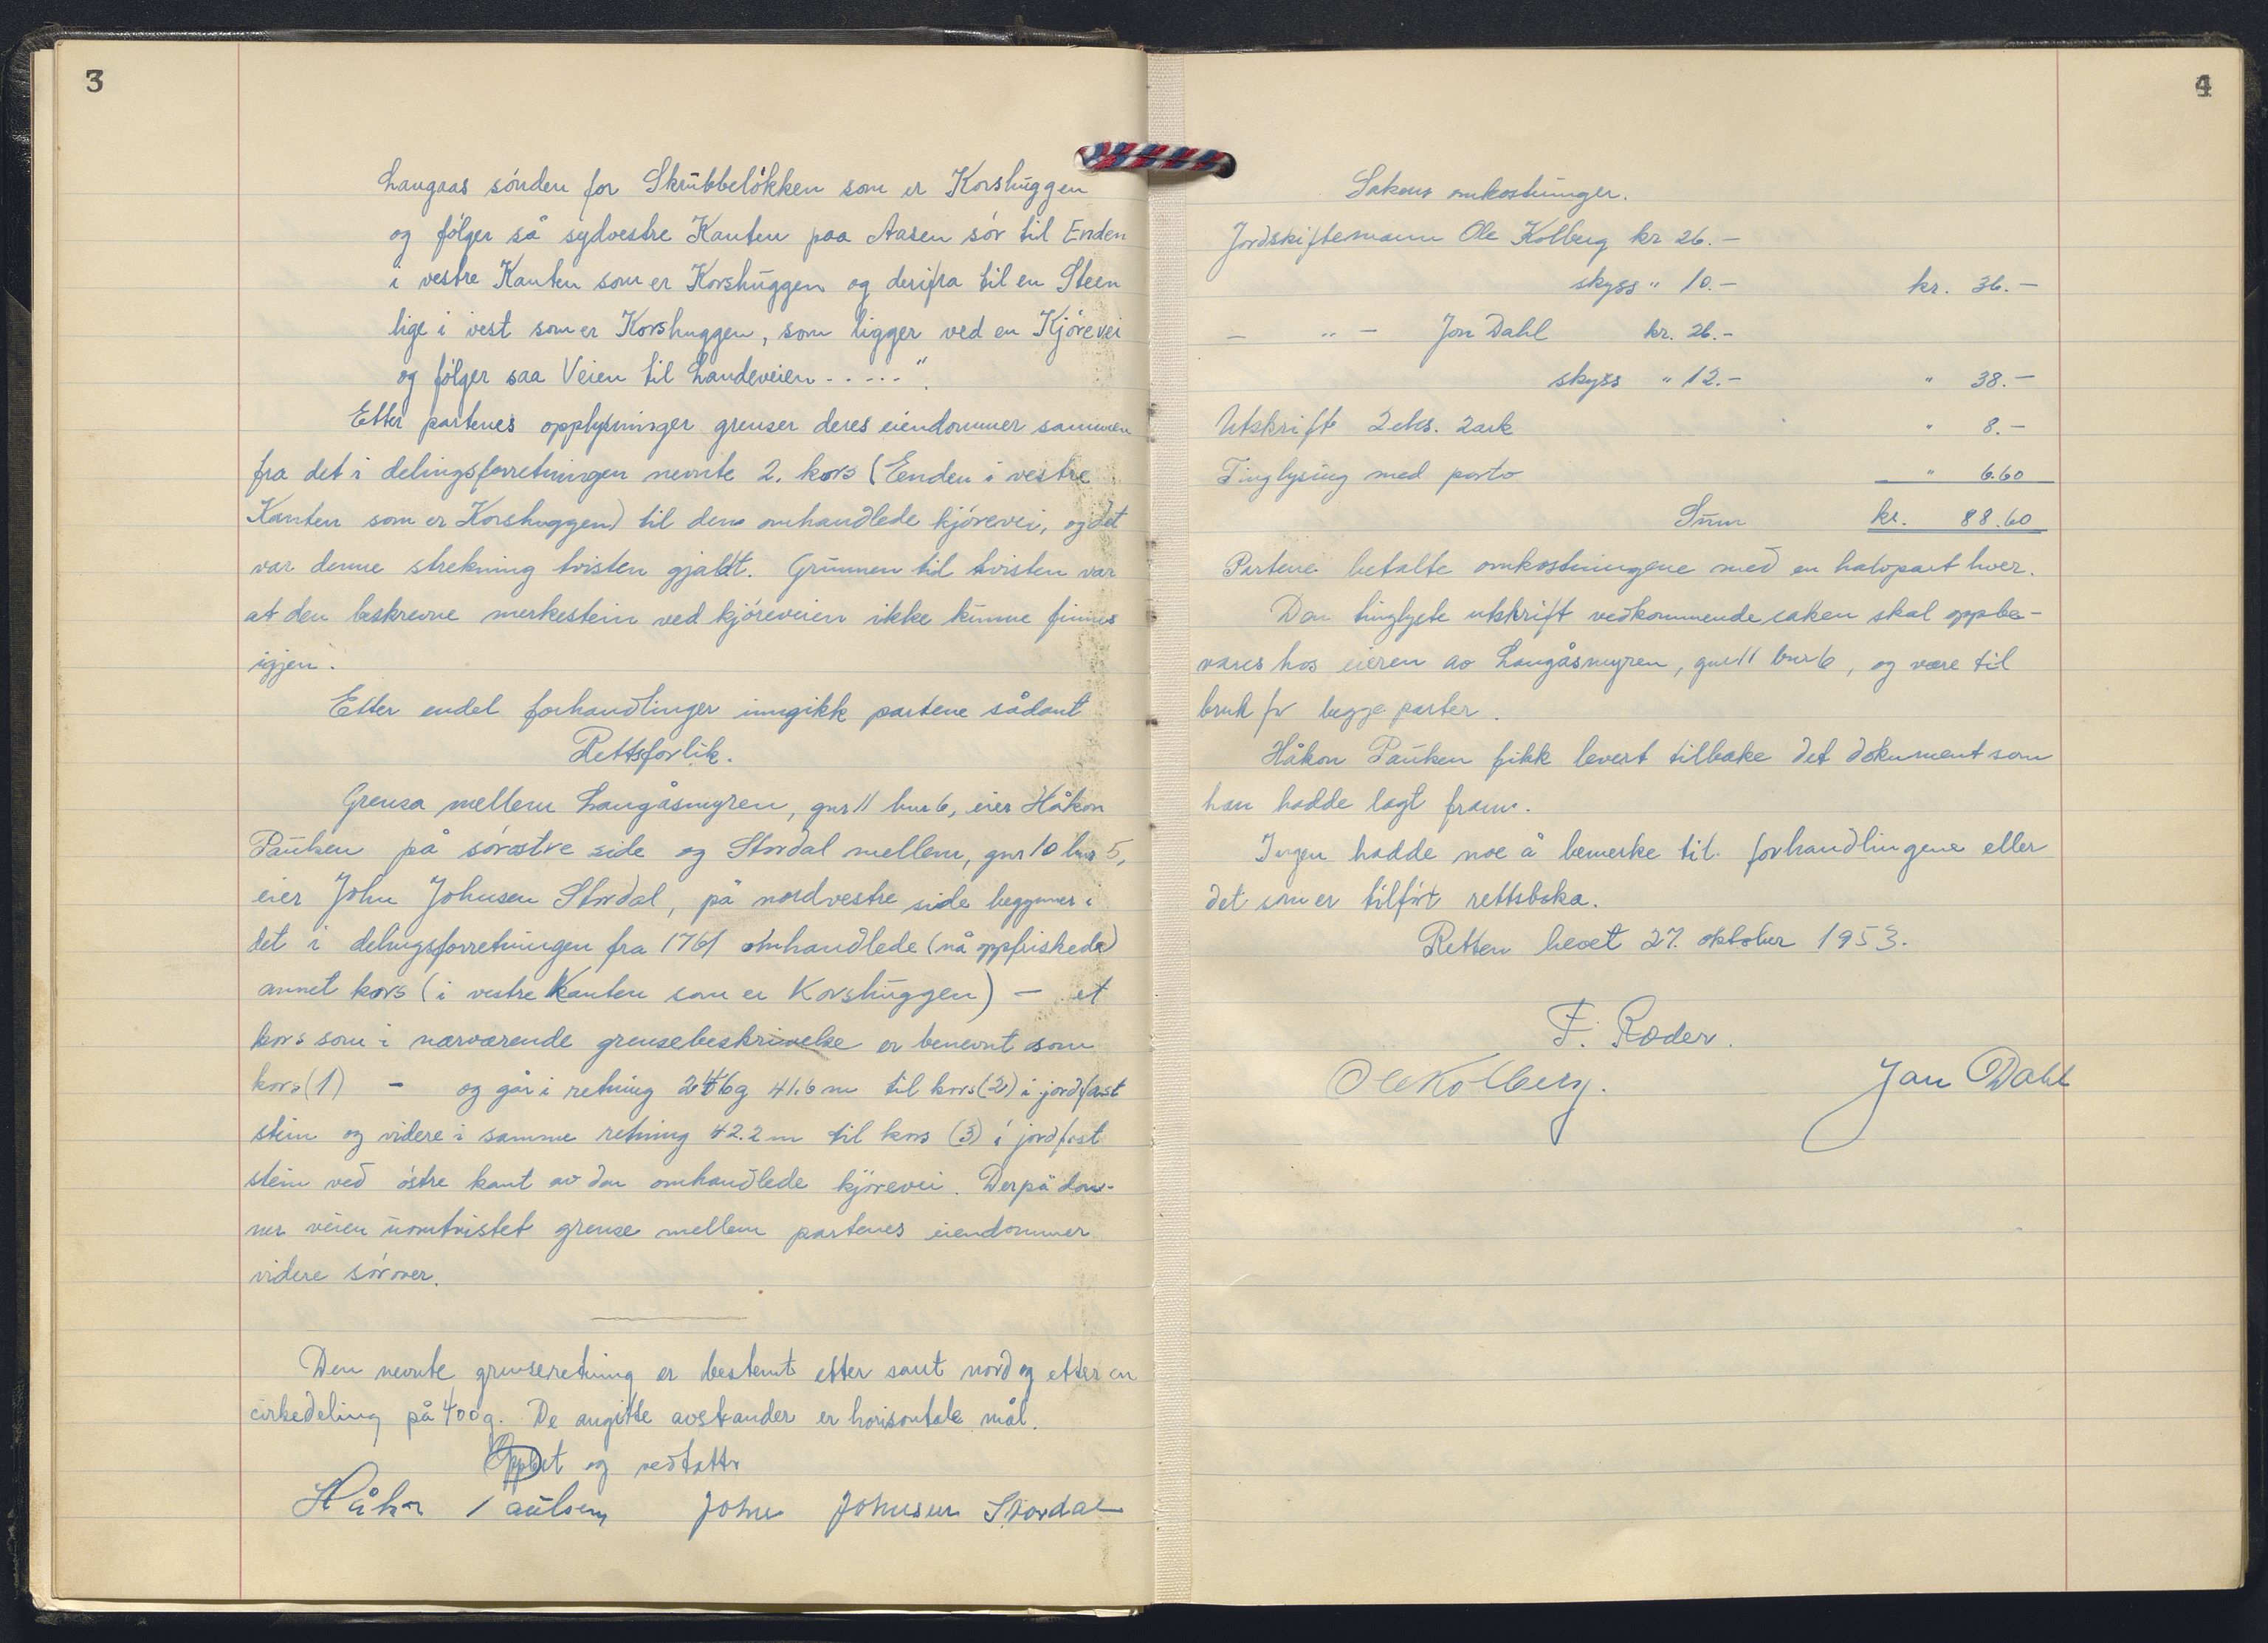 3
Langaas sønden for Skrubbeløkken som er Korshuggen
og følger så sydvestre Kanten paa Aasen sør til Enden
i vestre Kanten som er Korshuggen og derifra til en Steen
lige i vest som er Korshuggen, som ligger ved en Kjørevei
og følger saa Veien til Landeveien . . . . . ".
Etter partenes opplysninger grenser deres eiendommer sammen
fra det i delingsforretningen nevnte 2. kors (Eenden i vestre
Kanten som er Korshuggen) til den omhandlede kjørevei, og det
var denne strekning tvisten gjaldt. Grunnen til tvisten var
at den beskrevne merkestein ved kjøreveien ikke kunne finnes
igjen.
Etter endel forhandlinger inngikk partene sådant
Rettsforlik.
Grensa mellem Langåsmyren, gnr 11 bnr 6, eier Håkon
Paulsen på sørøstre side og Stordal mellem, gnr 10 bnr 5,
eier John Johnsen Stordal, på nordvestre side begynner i
det i delingsforretningen fra 1761 omhandlede (nå oppfriskede)
annet kors (i vestre Kanten som er Korshuggen) – et
kors som i nærværende grensebeskrivelse er benevnt som
kors (1) – og går i retning 246g 41.6 m til kors (2) i jordfast
stein og videre i samme retning 42.2 m til kors (3) i jordfast
stein ved østre kant av den omhandlede kjørevei. Derpå dan-
ner veien uomtvistet grense mellem partenes eiendommer
videre sørover.
Den nevnte grenseretning er bestemt etter sant nord og etter en
cirkeldeling på 400g. De angitte avstander er horisontale mål.
Opplest og vedtatt
Håkon Paulsen John Johnsen Stordal
4
Sakens omkostninger.
Jordskiftemann Ole Kolberg kr 26.–
skyss " 10.– kr. 36.–
– " – Jon Dahl kr. 26.–
skyss " 12.– " 38.–
Utskrift 2 eks. 2 ark " 8.–
Tinglysing med porto " 6.60
Sum kr. 88.60
Partene betalte omkostningene med en halvpart hver.
Den tinglyste utskrift vedkommende saken skal oppbe-
vares hos eieren av Langåsmyren, gnr 11 bnr 6, og være til
bruk for begge parter.
Håkon Paulsen fikk levert tilbake det dokument som
han hadde lagt fram.
Ingen hadde noe å bemerke til forhandlingene eller
det som er tilført rettsboka.
Retten hevet 27. oktober 1953.
F. Røder.
Ole Kolberg. Jon Dahl